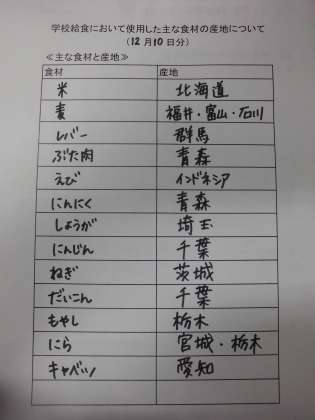 学校給食において使用した主な食材の産地について
(12月10日分)
≪主な食材と産地≫
食材 産地
米 北海道
麦 福井・富山・石川
レバー 群馬
ぶた肉 青森
えび インドネシア
にんにく 青森
しょうが 埼玉
にんじん 千葉
ねぎ 茨城
だいこん 千葉
もやし 栃木
にら 宮城・栃木
キャベツ 愛知